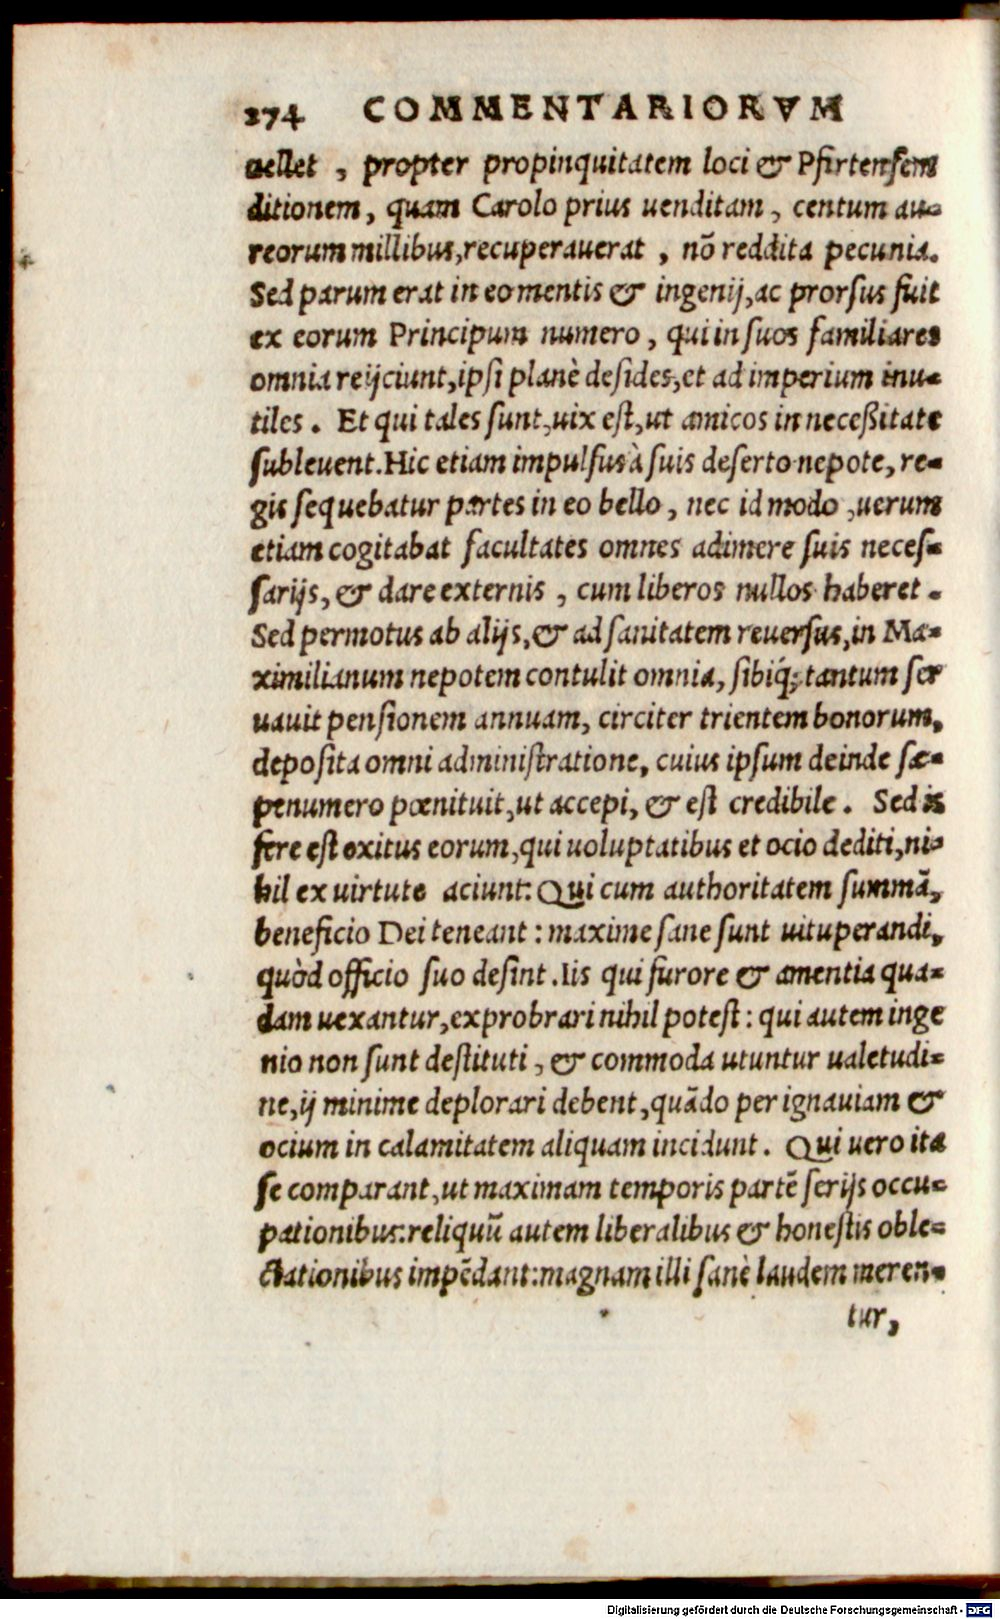 274 COMMENTARIORVM
uellet, propter propinquitatem loci & Pfirtensem
ditionem, quam Carolo prius uenditam, centum au-
reorum millibus, recuperauerat, nō reddita pecunia.
Sed parum erat in eo mentis & ingenij, ac prorsus fuit
ex eorum Principum numero, qui in suos familiares
omnia reijciunt, ipsi planè desides, et ad imperium inu-
tiles. Et qui tales sunt, uix est, ut amicos in neceßitate
subleuent. Hic etiam impulsus à suis deserto nepote, re-
gis sequebatur partes in eo bello, nec id modo, uerum
etiam cogitabat facultates omnes adimere suis neces-
sarijs, & dare externis, cum liberos nullos haberet.
Sed permotus ab alijs, & ad sanitatem reuersus, in Ma-
ximilianum nepotem contulit omnia, sibiq́; tantum ser
uauit pensionem annuam, circiter trientem bonorum,
deposita omni administratione, cuius ipsum deinde sæ-
penumero pœnituit, ut accepi, & est credibile. Sed is
fere est exitus eorum, qui uoluptatibus et ocio dediti, ni-
hil ex uirtute aciunt: Qui cum authoritatem summā,
beneficio Dei teneant: maxime sane sunt uituperandi,
quòd officio suo desint. Iis qui furore & amentia qua-
dam uexantur, exprobrari nihil potest: qui autem inge
nio non sunt destituti, & commoda utuntur ualetudi-
ne, ij minime deplorari debent, quādo per ignauiam &
ocium in calamitatem aliquam incidunt. Qui uero ita
se comparant, ut maximam temporis partē serijs occu-
pationibus: reliquū autem liberalibus & honestis oble-
ctationibus impēdant: magnam illi sanè laudem meren-
tur,
Digitalisierung gefördert durch die Deutsche Forschungsgemeinschaft - DFG